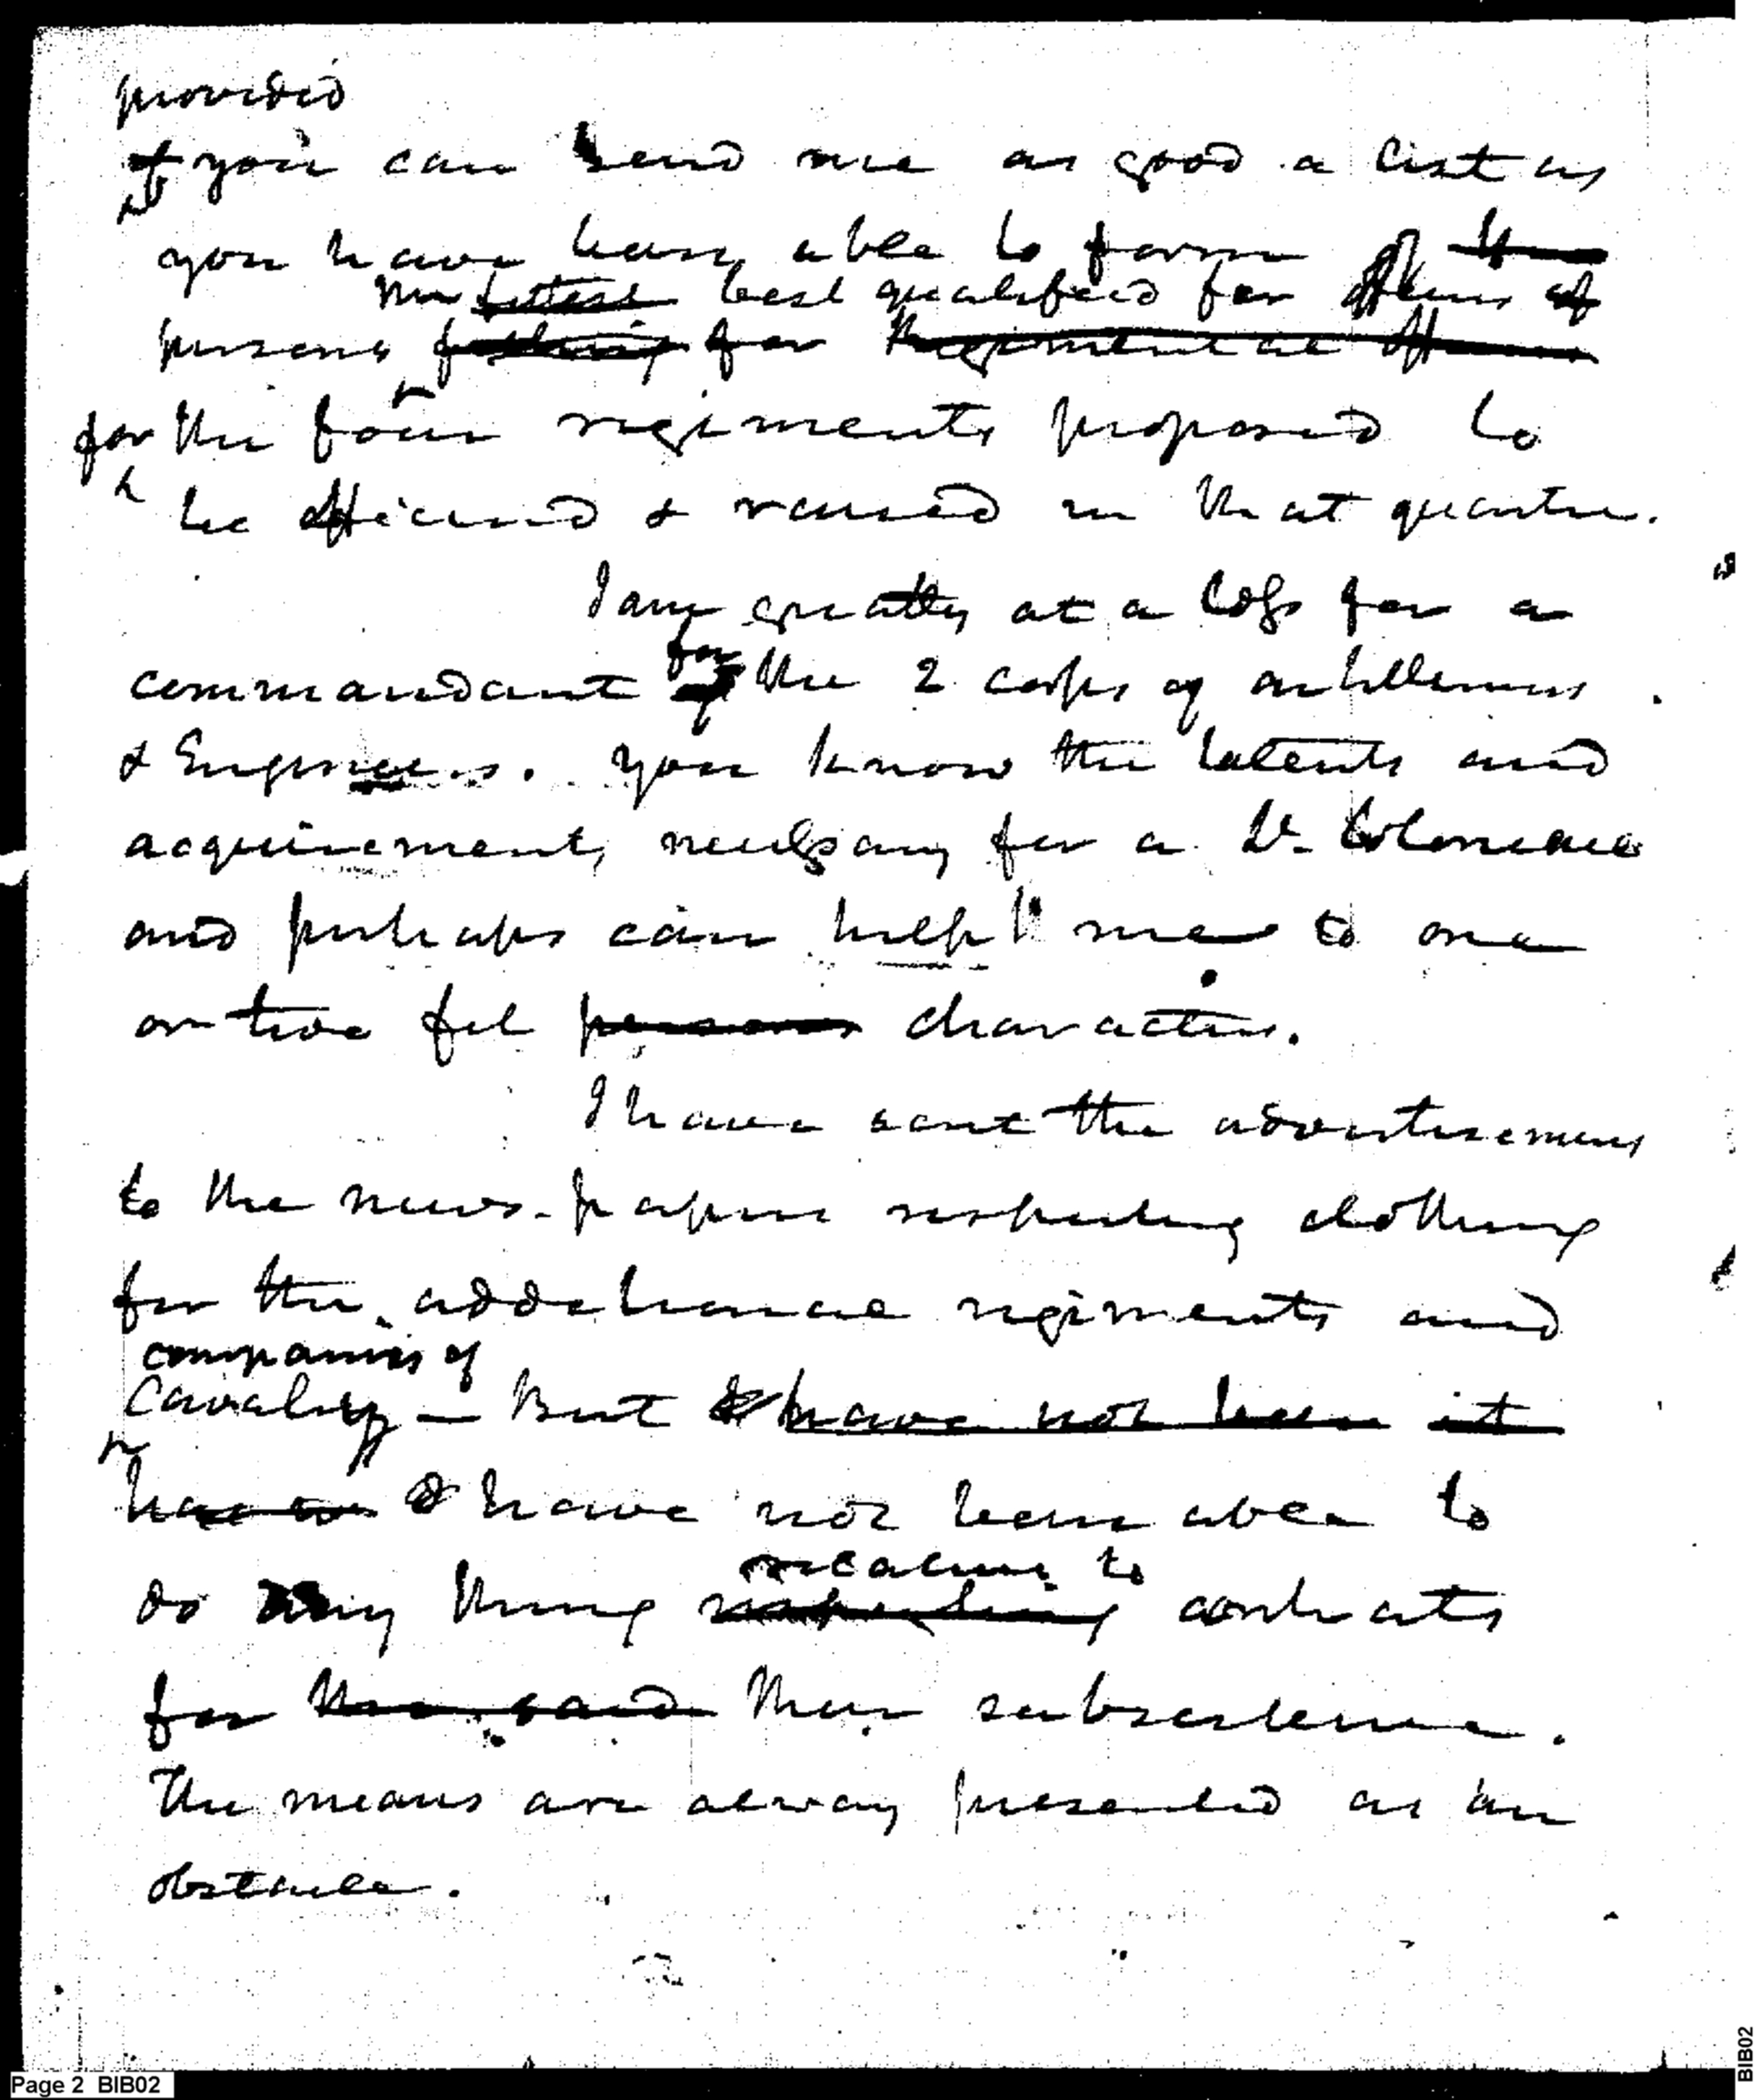 provided
if you can send me as good a list as
you have been able to form of the
the fittest best qualified for officers of
persons for Regimental Officers
for the four regiments proposed to
be officered & raised in that quarter.
I am greatly at a loss for a
for
commandant of the 2 corps of artillerists
& Engineers. you know the talents and
acquirements necessary for a Lt. Colonel
and perhaps can help me to one
or two fit persons characters.
I have sent the advertisements
to the news-papers respecting clothing
for the additional regiments and
companies of
Cavalry — But I have not been it
I have not been able to
relative to
do any thing respecting contracts
for the said their subsistence.
The means are always presented as an
obstacle.
Page 2 BIB02
BIB02